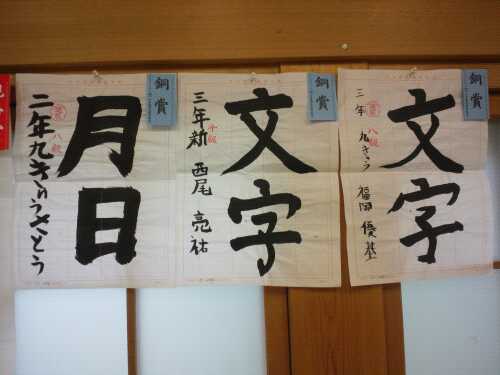 銅賞
文字
三年 九きう 福岡 優基
八級
銅賞
文字
三年新 西尾 亮祐
銅賞
月日
二年九きゅうさとう
八級